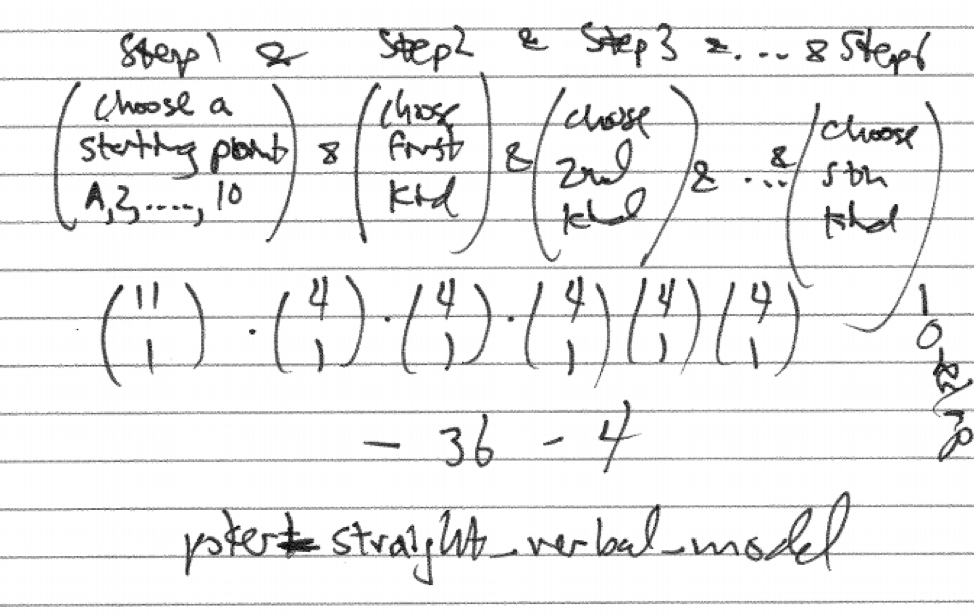 Step 1 & Step 2 & Step 3 & .... & Step 6
(choose a starting point A,2,....,10) & (choose first kind) & (choose 2nd kind) & ... & (choose 5th kind)
(11 1) · (4 1) · (4 1) · (4 1) (4 1) (4 1)
- 36 - 4
poker straight_verbal_model